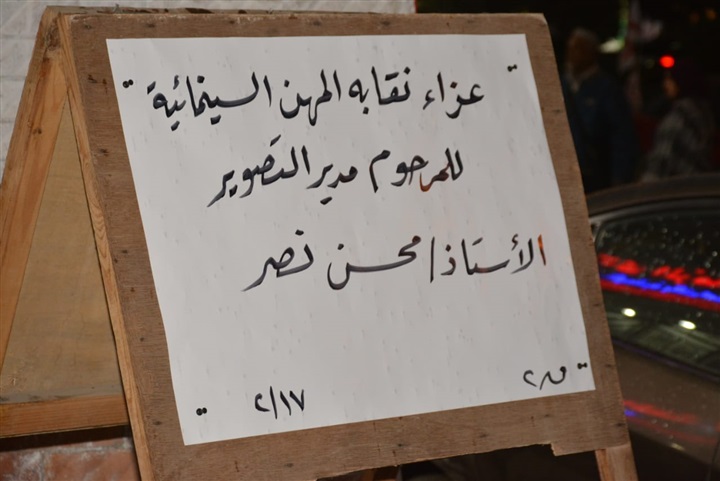 " عزاء نقابه المهن السينمائية "
للمرحوم مدير التصوير
الأستاذ/ محسن نصر
" ٢/١٧ "